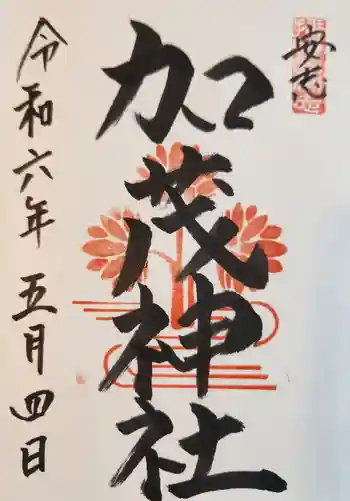 安志
加茂神社
令和六年五月四日